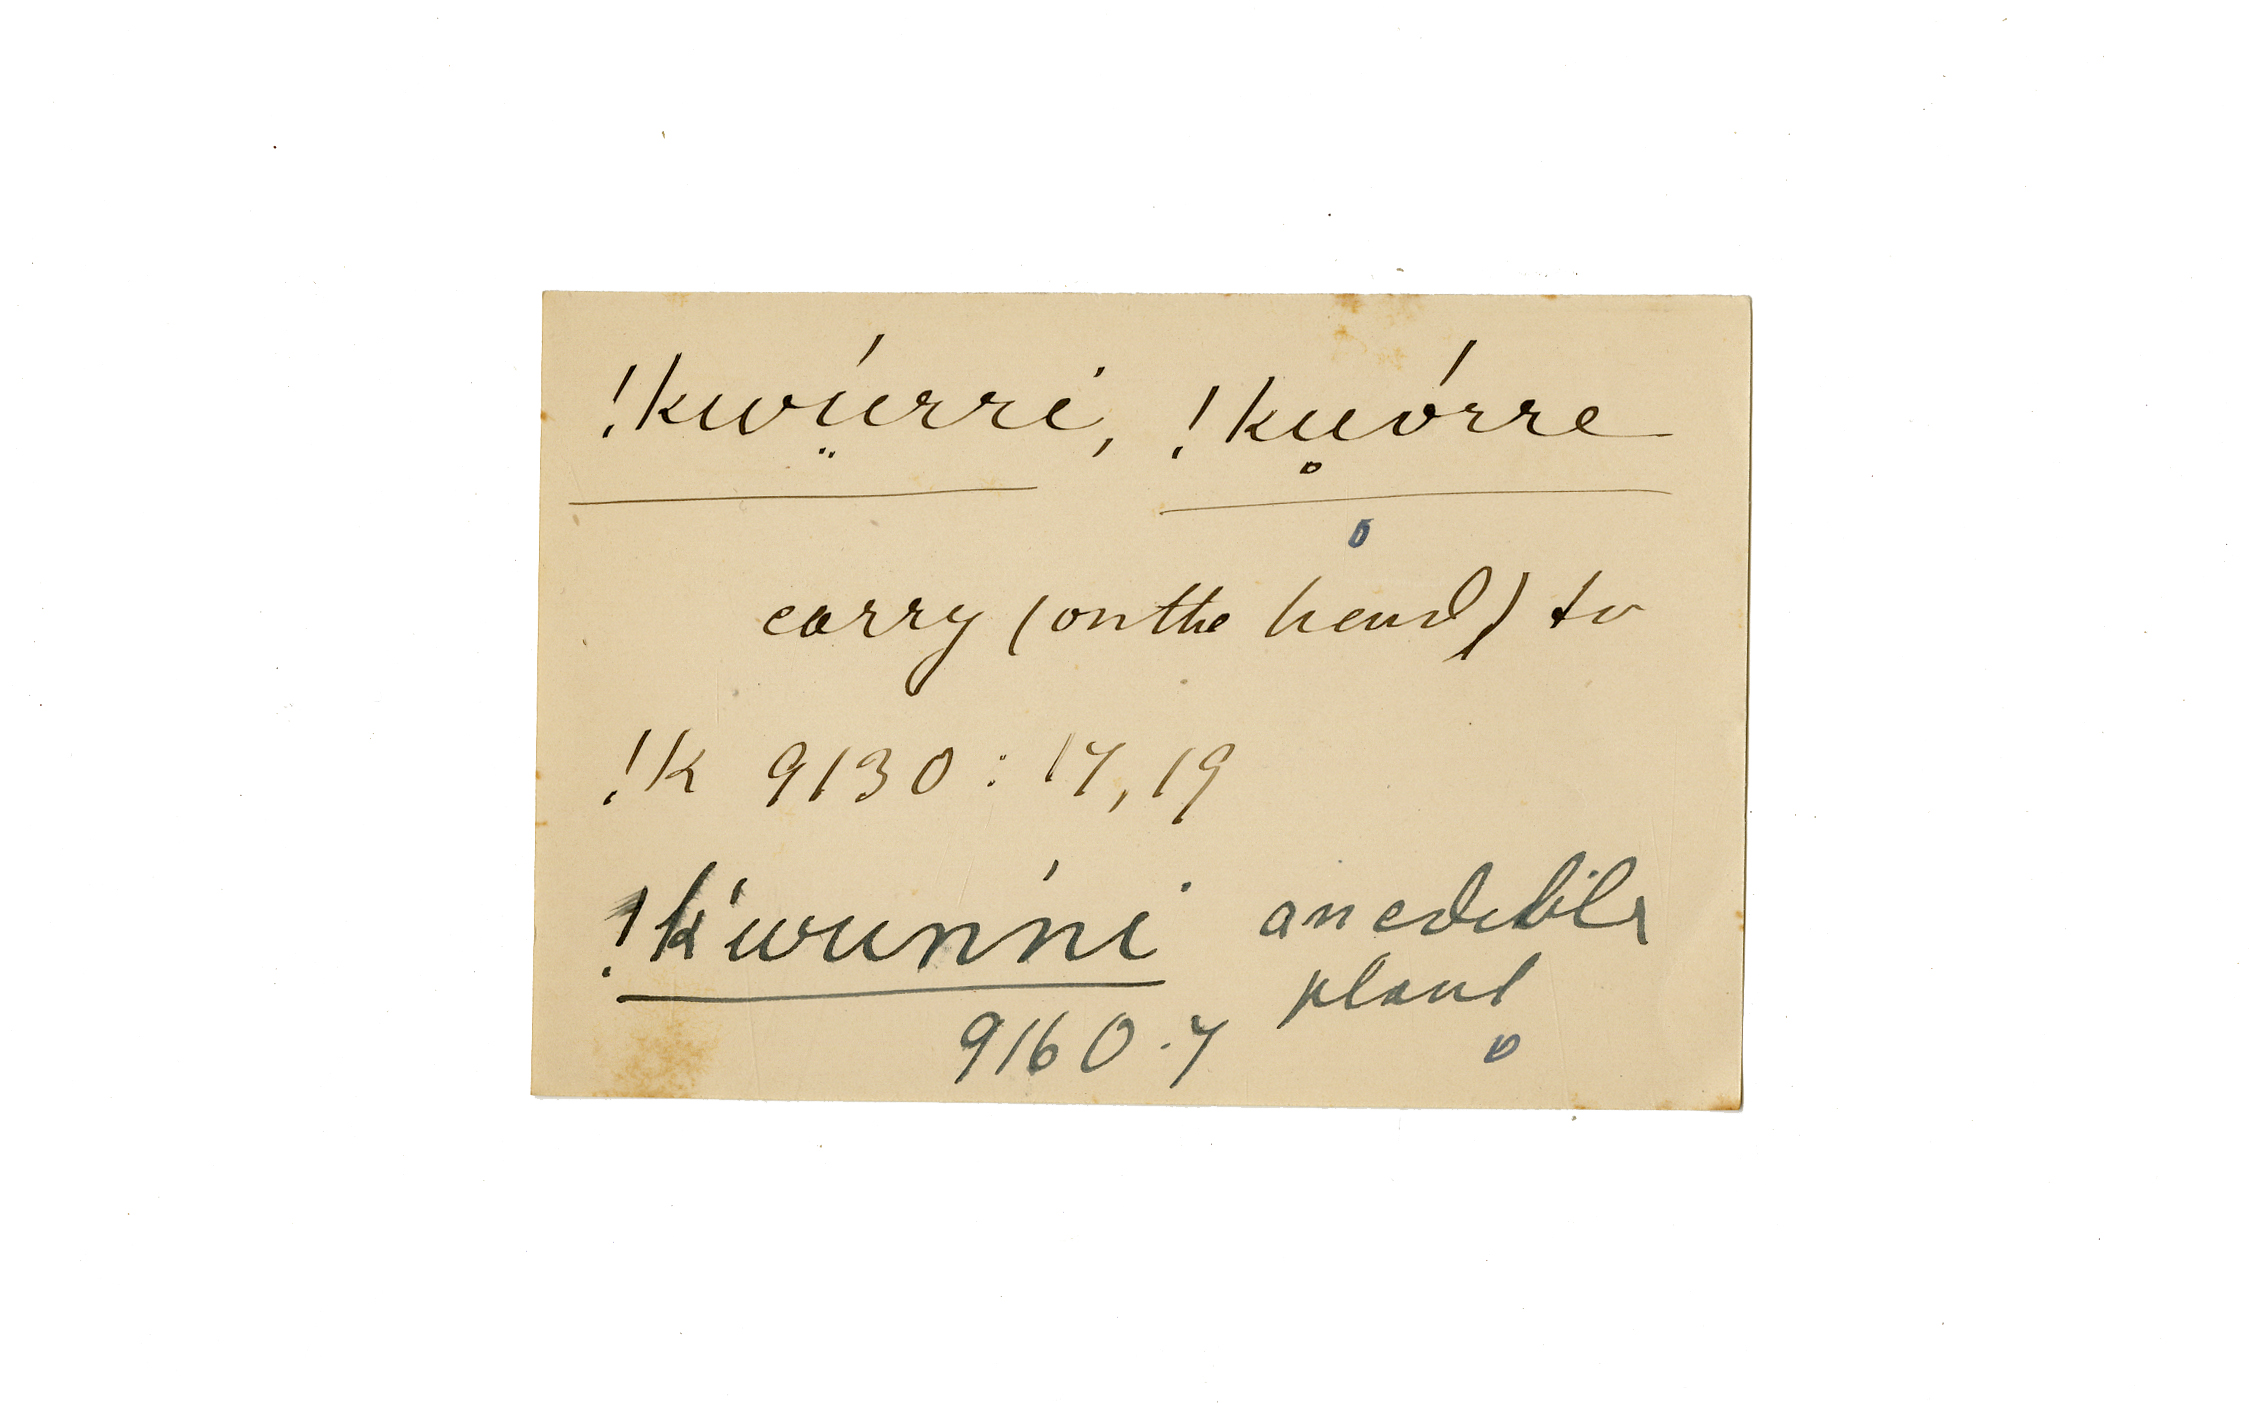 !kwṳ́rri, !ku̥órre
carry (on the head) to
!k 9130 : 17, 19
!k'wunńi an edible
plant
9160.7